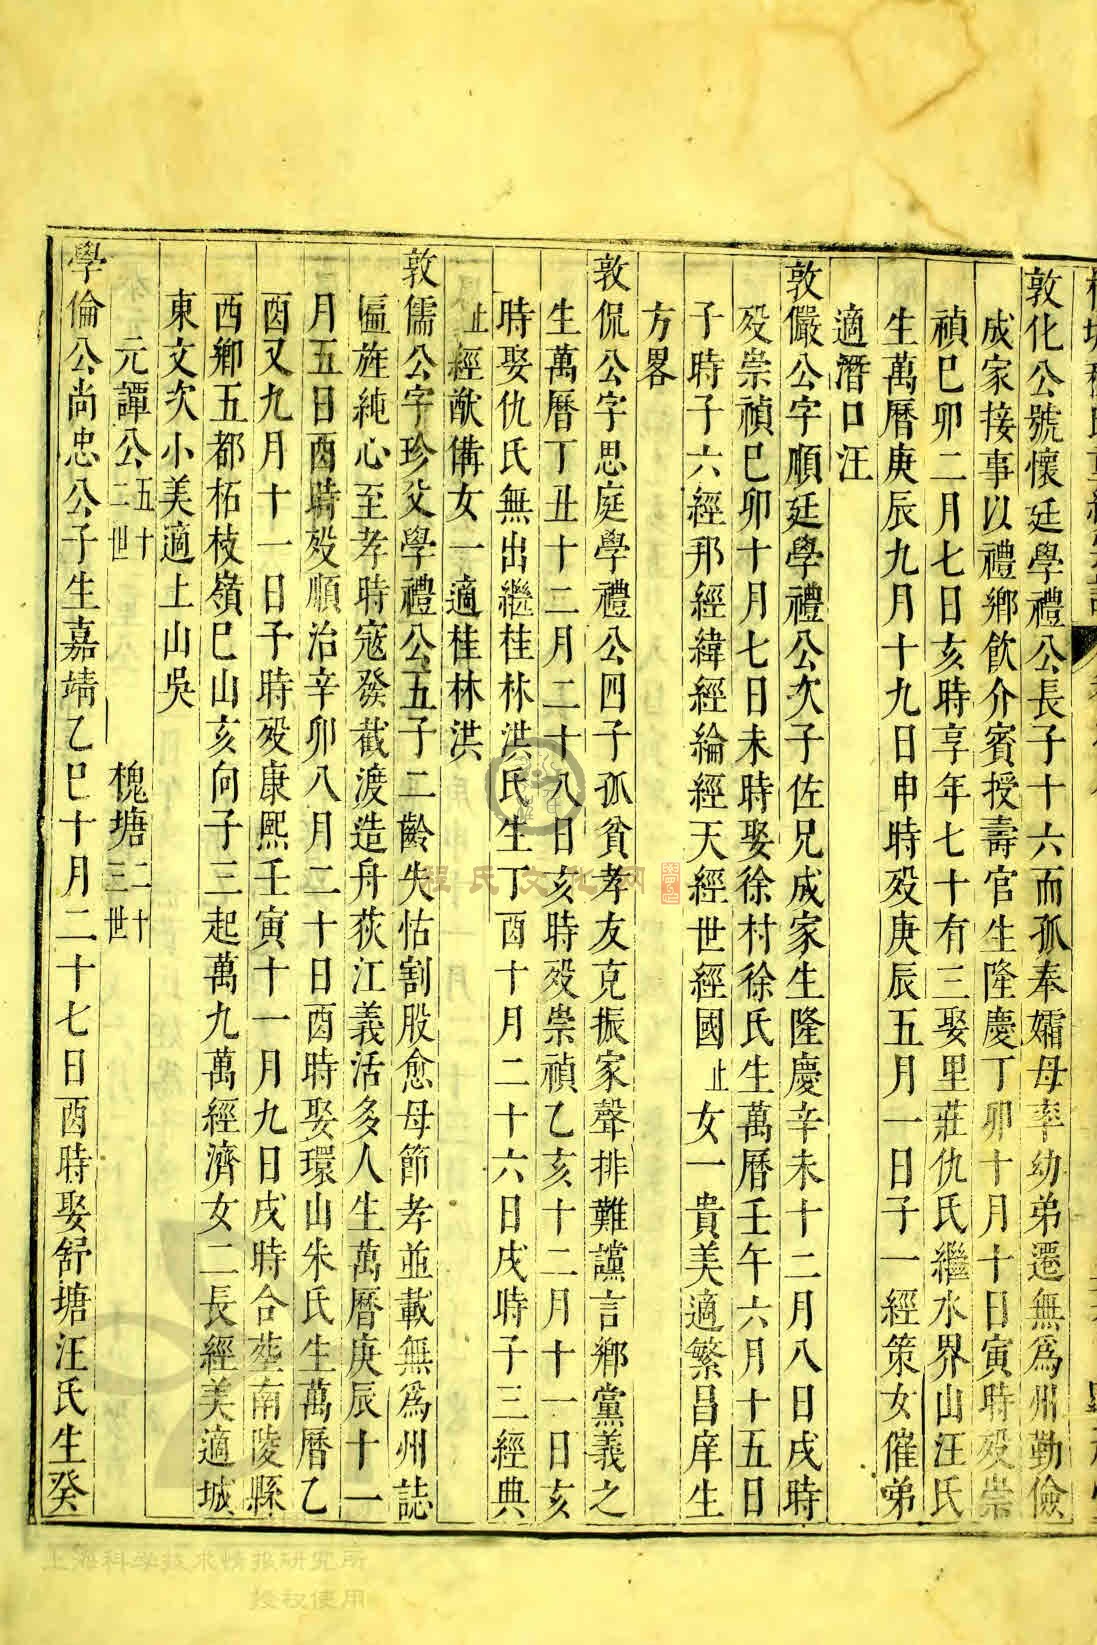 敦化公號懷廷學禮公長子十六而孤奉孀母率幼弟遷無爲州勤儉
成家接事以禮鄉飲介賓授壽官生隆慶丁卯十月十日寅時歿崇
禎巳卯二月七日亥時享年七十有三娶里莊仇氏繼水界山汪氏
生萬曆庚辰九月十九日申時歿庚辰五月一日子一經策女催弟
適潛口汪
敦儼公字順廷學禮公次子佐兄成家生隆慶辛未十二月八日戌時
歿崇禎巳卯十月七日未時娶徐村徐氏生萬曆壬午六月十五日
子時子六經邦經緯經綸經天經世經國止女一貴美適繁昌庠生
方畧
敦侃公字思庭學禮公四子孤貧孝友克振家聲排難讜言鄉黨義之
生萬曆丁丑十二月二十八日亥時歿崇禎乙亥十二月十一日亥
時娶仇氏無出繼桂林洪氏生丁酉十月二十六日戌時子三經典
止經猷經備女一適桂林洪
敦儒公字珍父學禮公五子二齡失怙割股愈母節孝並載無爲州誌
匾旌純心至孝時寇發截渡造舟荻江義活多人生萬曆庚辰十一
月五日酉時歿順治辛卯八月二十日酉時娶環山朱氏生萬曆乙
酉又九月十一日子時歿康熙壬寅十一月九日戌時合塋南陵縣
西鄉五都柘枝嶺巳山亥向子三起萬九萬經濟女二長經美適城
東文次小美適上山吳
元譚公五十二世 槐塘二十三世
學倫公尚忠公子生嘉靖乙巳十月二十七日酉時娶舒塘汪氏生癸
程氏文化网
上海科学技术情报研究所
授权使用